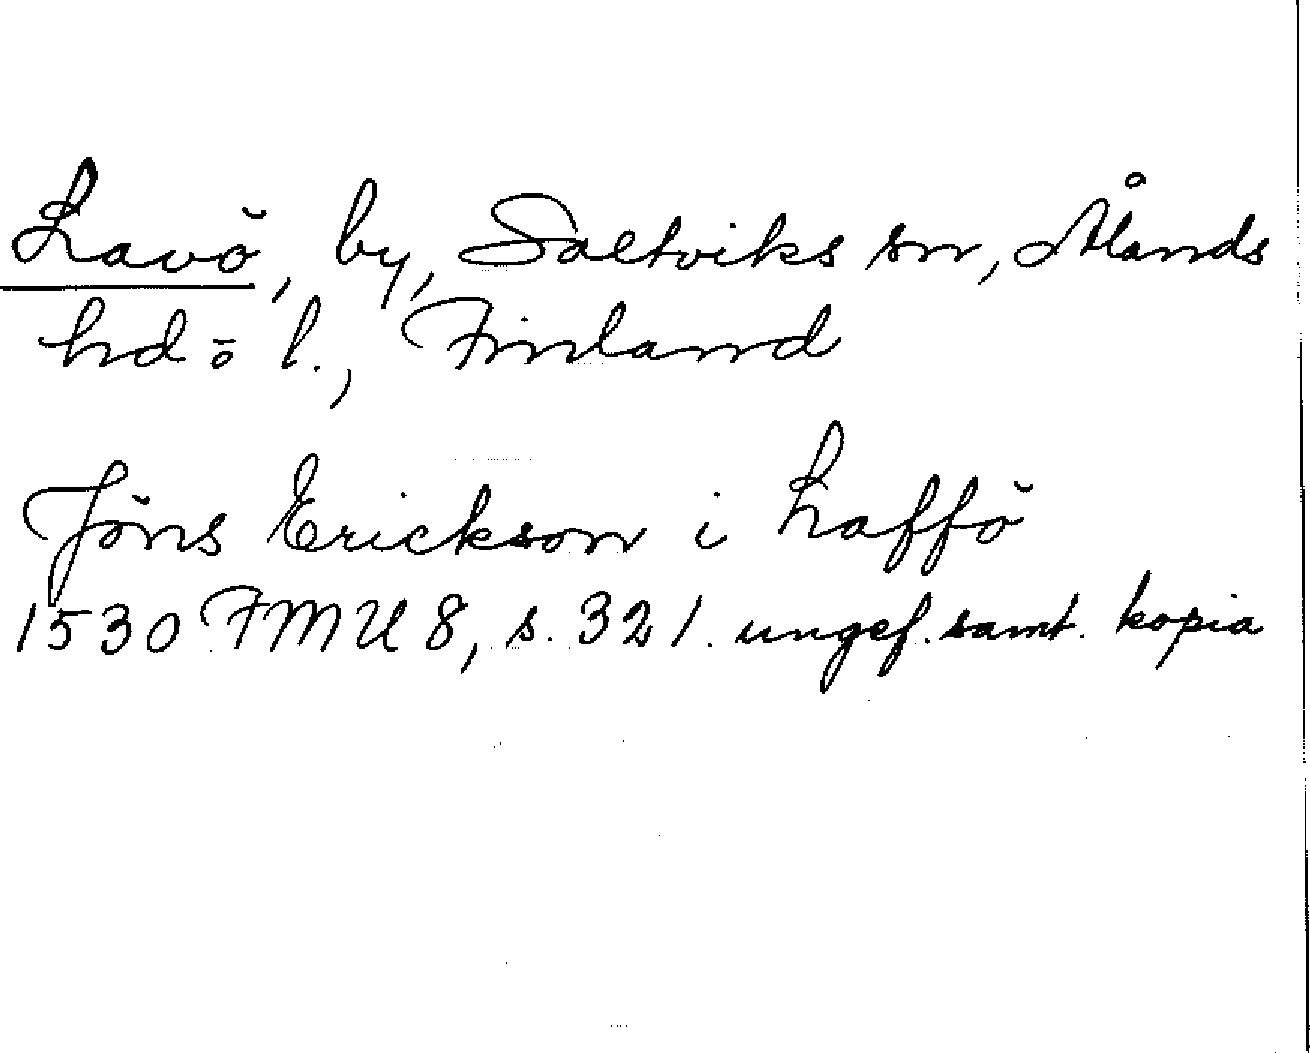 Lavö, by, Saltviks sn, Ålands
hd o l., Finland
Jöns Erickson i Laffö
1530 FMU 8, s. 321. ungef. samt. kopia